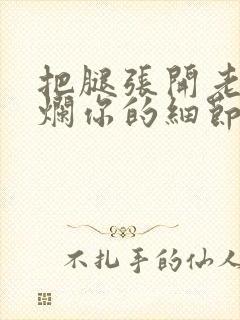 把腿張開老
爛你的細節
不扎手的仙人